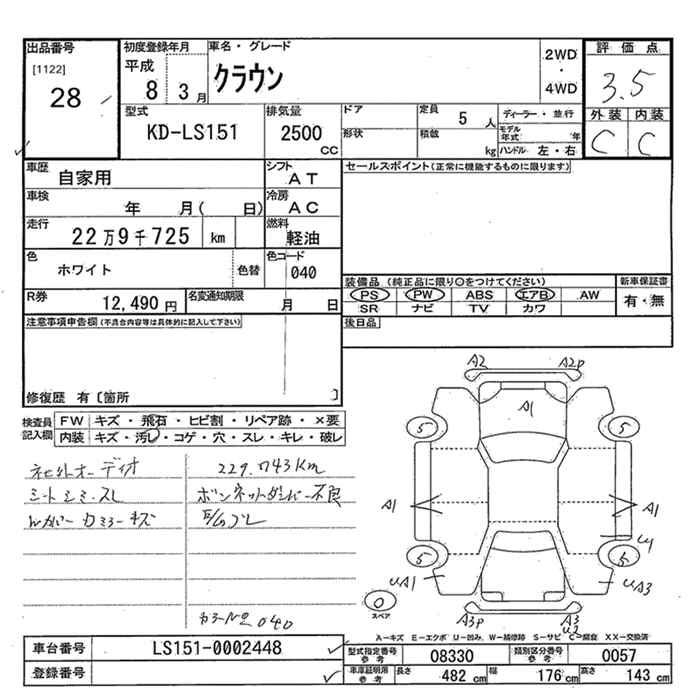 出品番号
[1122]
28
初度登録年月
平成
8 3月
車名・グレード
クラウン
2WD
・
4WD
評価点
3.5
外装 内装
C C
型式
KD-LS151
排気量
2500
CC
ドア
形状
定員
5 人
積載
kg
ディーラー・並行
モデル年式 年
ハンドル 左・右
車歴
自家用
シフト
AT
セールスポイント(正常に機能するものに限ります)
車検
年 月( 日)
冷房
AC
走行
22万9千725 km
燃料
軽油
色
ホワイト
色替
色コード
040
装備品 (純正品に限り○をつけてください)
PS PW ABS エアB AW
SR ナビ TV カワ
新車保証書
有・無
R券
12,490 円
名変通知期限
月 日
後日品
注意事項申告欄(不具合内容等は具体的に記入して下さい)
修復歴 有〔箇所 〕
検査員
記入欄
FW キズ・飛石・ヒビ割・リペア跡・×要
内装 キズ・汚レ・コゲ・穴・スレ・キレ・破レ
社外オーディオ
229.743km
シートシミ・スレ
ボンネットダンパー不良
カラーNo 040
A2 A2P
A1
5 5
A1 A1
U1
5 5
UA1 UA3
0
スペア
A3P A3
U2
A-キズ E-エクボ U-凹み、W-補修跡 S-サビ C-腐食 XX-交換済
車台番号
LS151-0002448
登録番号
型式指定番号
参考
08330
類別区分番号
参考
0057
車庫証明用
参考
長さ
482 cm
幅
176 cm
高さ
143 cm